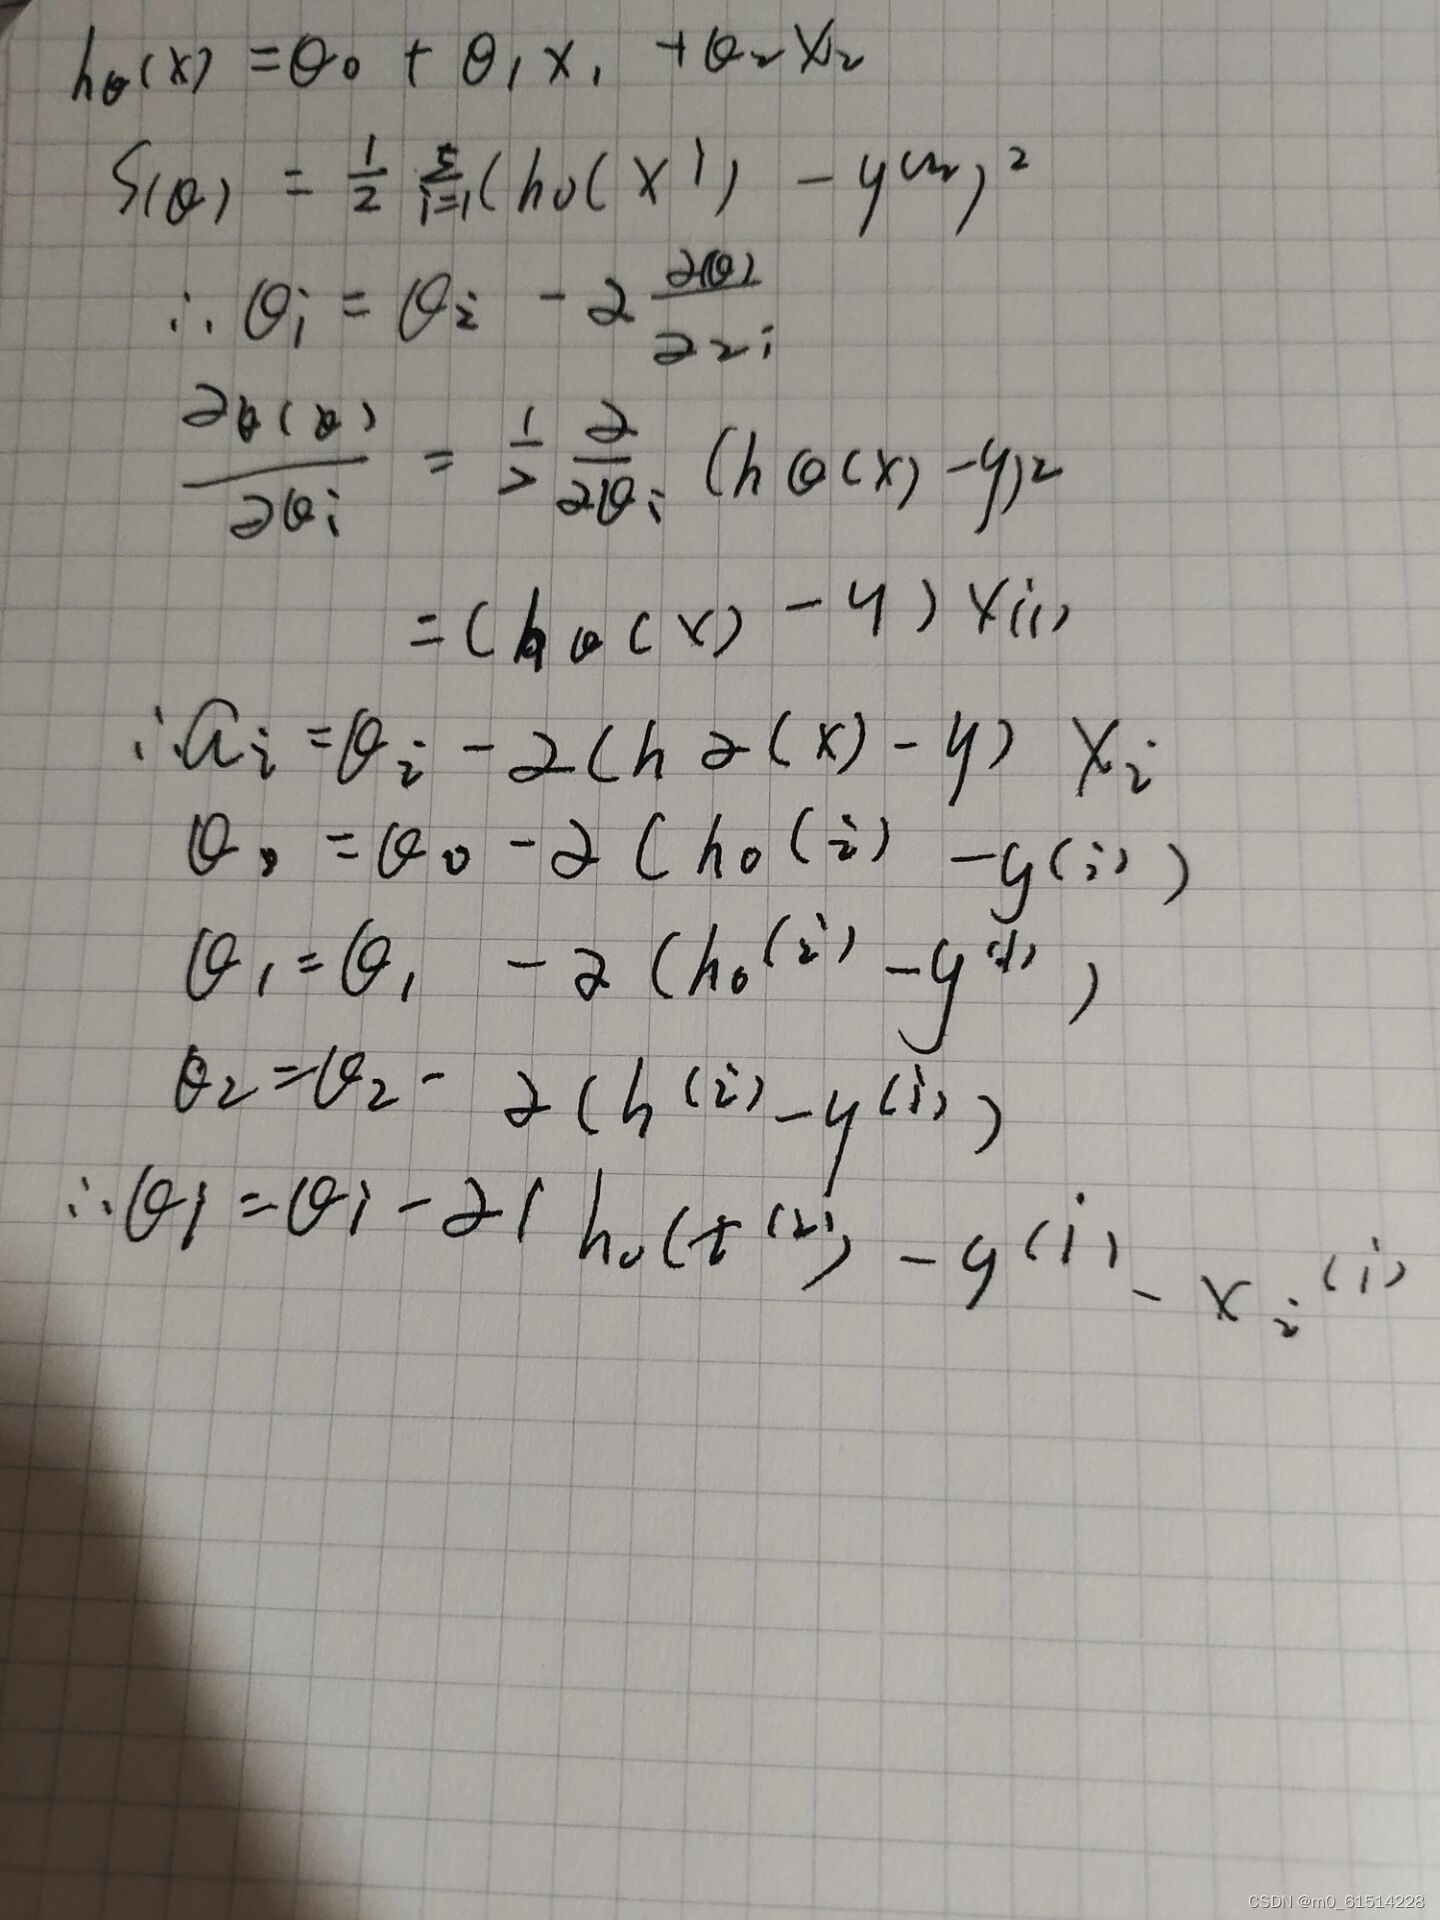 hθ(x) = θ₀ + θ₁x₁ + θ₂x₂
S(θ) = 1/2 Σ i=1 (h₀(xⁱ) - y⁽ᵐ⁾)²
∴ θi = θi - 2 ∂(θ)/∂2i
∂θ(θ)/∂θi = 1/2 ∂/∂θi (hθ(x) - y)2
= (hθ(x) - y) x(i)
∴ ai = θi - 2(h2(x) - y) xi
θ₀ = θ₀ - 2(h₀(i) - y(i))
θ₁ = θ₁ - 2(h₀⁽ⁱ⁾ - y⁽ⁱ⁾)
θ₂ = θ₂ - 2(h⁽ⁱ⁾ - y⁽ⁱ⁾)
∴ θi = θi - 2( h₀(t⁽ⁱ⁾) - y⁽ⁱ⁾ - xi⁽ⁱ⁾
CSDN @m0_61514228